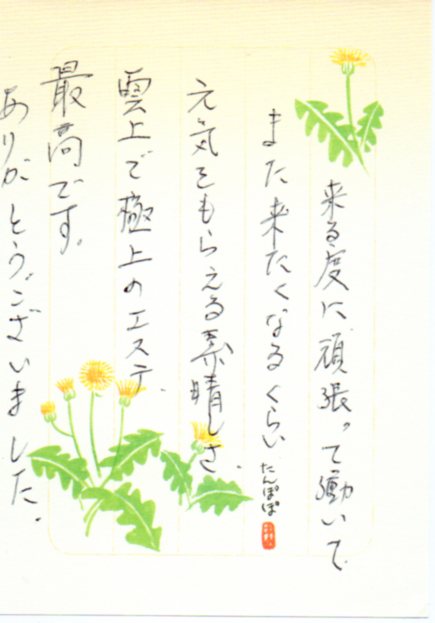 来る度に頑張って働いて
また来たくなるくらい
元気をもらえる素晴しさ。
雲上で極上のエステ。
最高です。
ありがとうございました。
たんぽぽ